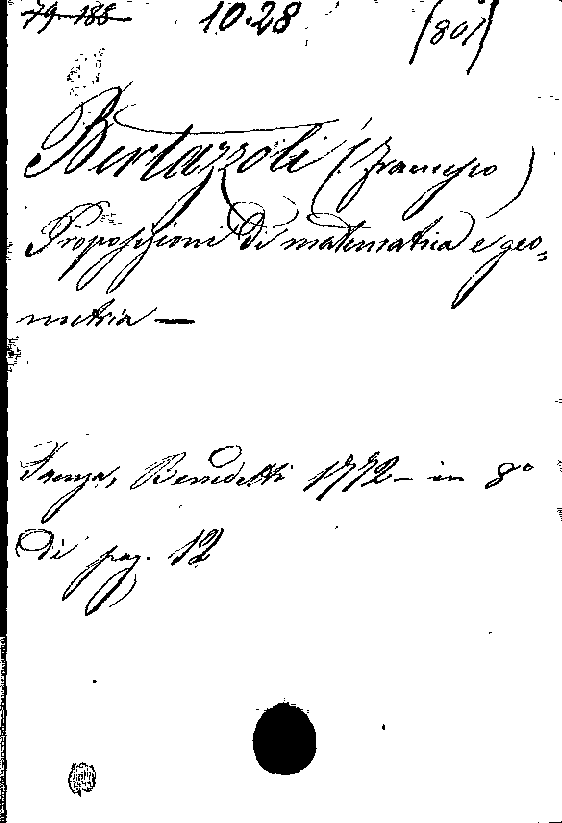 79-188 10.28 (801)
Bertazzoli (Francesco)
Proposizioni di matematica e geo=
metria —
Faenza, Benedetti 1772 - in 8°
di pag. 12